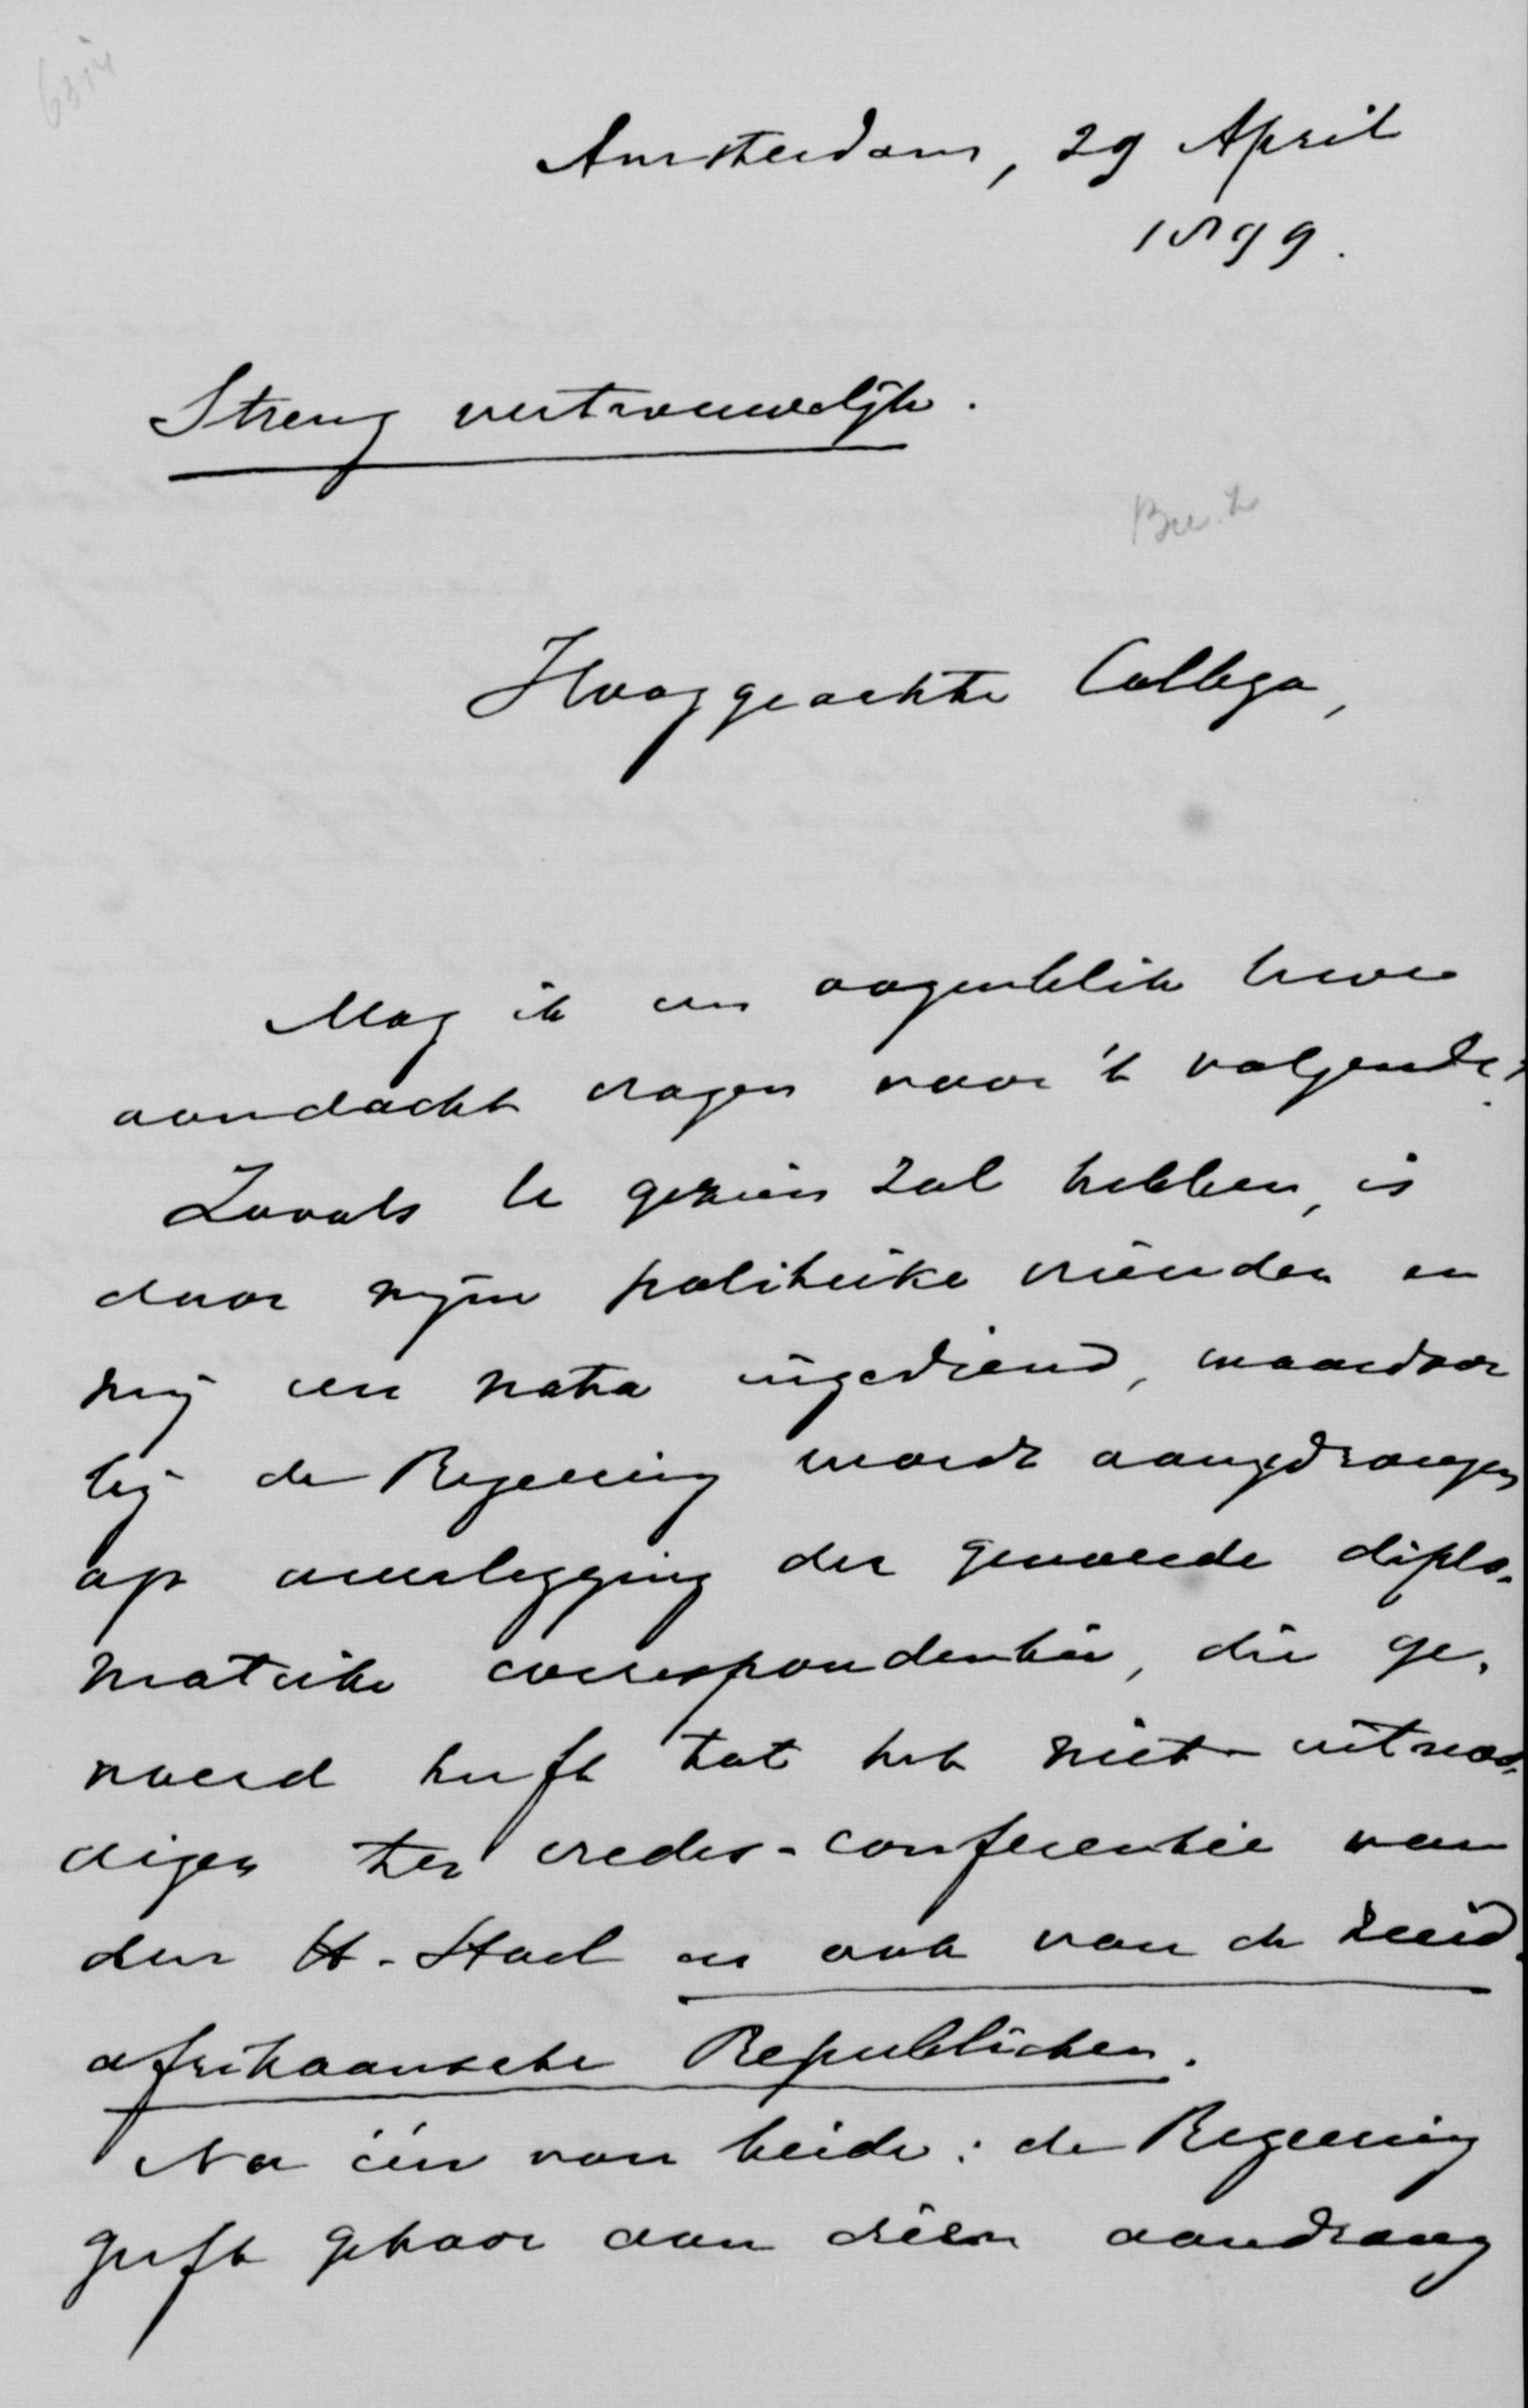 Amsterdam, 29 April
1899.
Streng vertrouwelijk.
Hooggeachte Collega,
Mag ik een oogenblik Uwe
aandacht vragen voor 't volgende?
Zooals U gezien zal hebben, is
door mijne politieke vrienden en
mij een nota ingediend, waardoor
bij de Regeering wordt aangedrongen
op overlegging der gevoerde diplo-
matieke correspondentie, die ge-
voerd heeft tot het niet-uitnoo-
digen ter vredes-conferentie van
den H. Stoel en ook van de Zuid-
afrikaansche Republieken.
Na één van beide: de Regeering
geeft gehoor aan dien aandrang